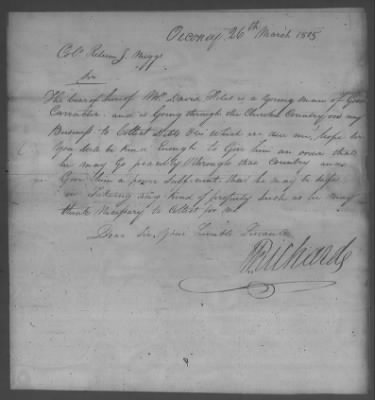 Oconoy 26th March 1805
Col. Return J. Meigs
Sir
The bearer hereof Mr. David is a young man of Good
Carracter and is Going through the Cherokee Country on my
Business to Collect Debts Due which are due me, hope
You will be kind Enough to Give him an order that
he may Go peacibly through that Country and
Give him a power Sufficient that he may be safe
in Takeing any kind of property Such as he may
think Necessary to Collect for me
Dear Sir, Your Humble Servant
Richards